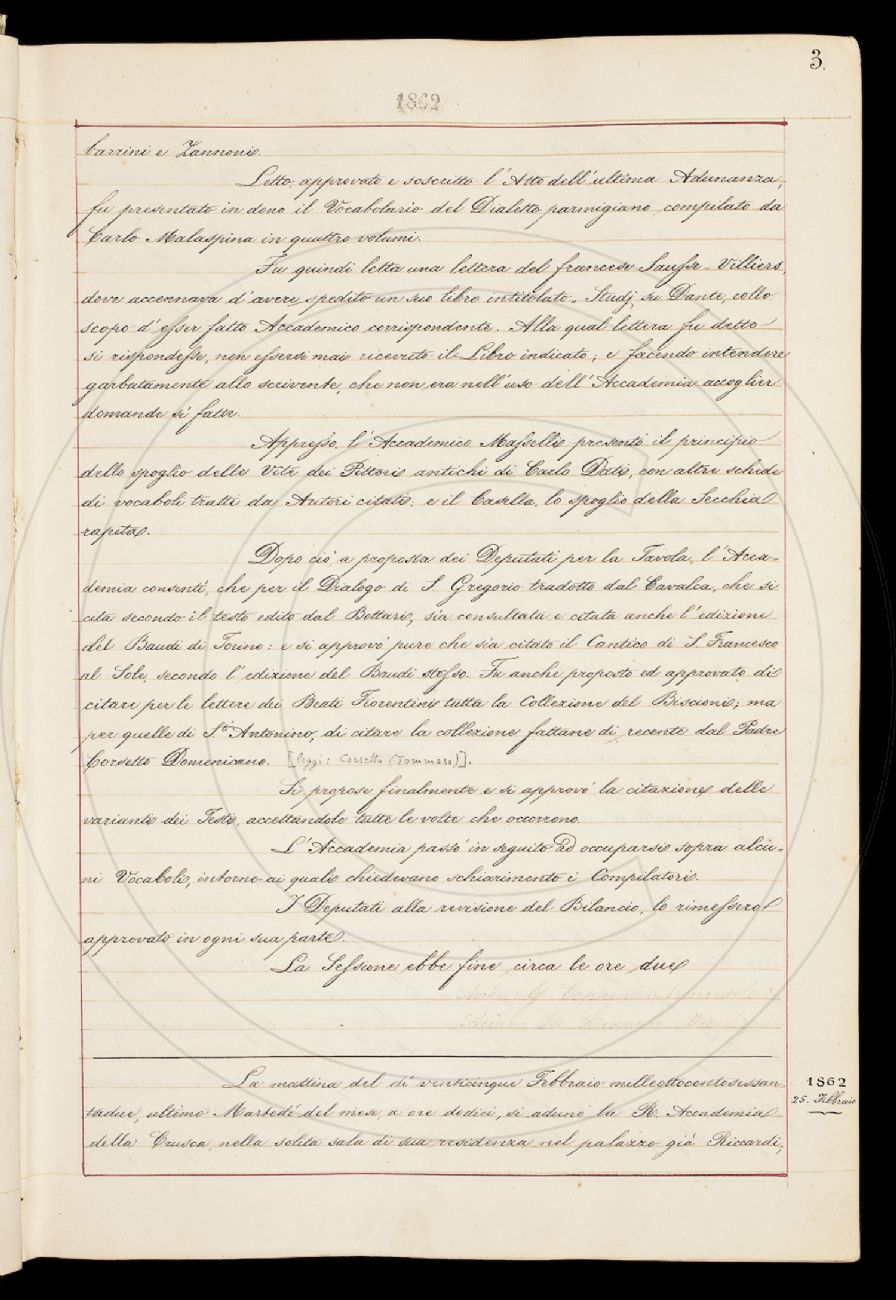 3.
1862
barrini e Zannoni.
Letto, approvato e soscritto l'Atto dell'ultima Adunanza,
fu presentato in dono il Vocabolario del Dialetto parmigiano compilato da
Carlo Malaspina in quattro volumi.
Fu quindi letta una lettera del francese Sausse-Villiers,
dove accennava d'avere spedito un suo libro intitolato Studj su Dante, collo
scopo d'esser fatto Accademico corrispondente. Alla qual lettera fu detto
si rispondesse, non essersi mai ricevuto il Libro indicato; e facendo intendere
garbatamente allo scrivente, che non era nell'uso dell'Accademia accoglier
domande sì fatte.
Appresso, l'Accademico Masselli presentò il principio
dello spoglio delle Vite dei Pittori antichi di Carlo Dati, con altre schede
di vocaboli tratti da Autori citati; e il Casella, lo spoglio della Secchia
rapita.
Dopo ciò, a proposta dei Deputati per la Tavola, l'Acca-
demia consentì, che per il Dialogo di S. Gregorio tradotto dal Cavalca, che si
cita secondo il testo edito dal Bottari, sia consultata e citata anche l'edizione
del Baudi di Torino: e si approvò pure che sia citato il Cantico di S. Francesco
al Sole, secondo l'edizione del Baudi stesso. Fu anche proposto ed approvato di
citare per le lettere dei Beati Fiorentini tutta la Collezione del Biscioni; ma
per quelle di S. Antonino, di citare la collezione fattane di recente dal Padre
Corsetto Domenicano. [leggi: Corsetto (Tommaso)].
Si propose finalmente e si approvò la citazione delle
varianti dei Testi, accettandole tutte le volte che occorrono.
L'Accademia passò in seguito ad occuparsi sopra alcu-
ni Vocaboli, intorno ai quali chiedevano schiarimento i Compilatori.
I Deputati alla revisione del Bilancio, lo rimessero
approvato in ogni sua parte.
La Sessione ebbe fine circa le ore due
La mattina del dì venticinque Febbraio milleottocentosessan
tadue, ultimo Martedì del mese, a ore dodici, si adunò la R. Accademia
della Crusca, nella solita sala di sua residenza nel palazzo già Riccardi,
1862
25. Febbraio